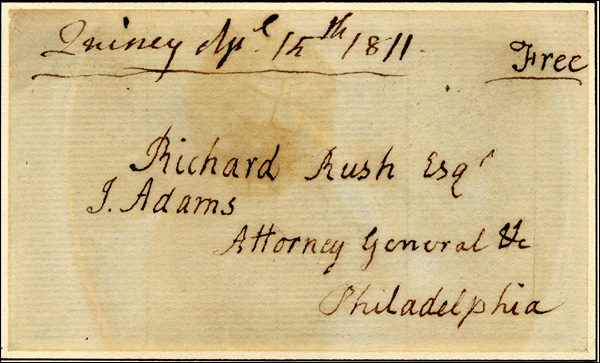 Quincy Apl. 15th 1811.
Free
Richard Rush Esqr
J. Adams
Attorney General &c
Philadelphia